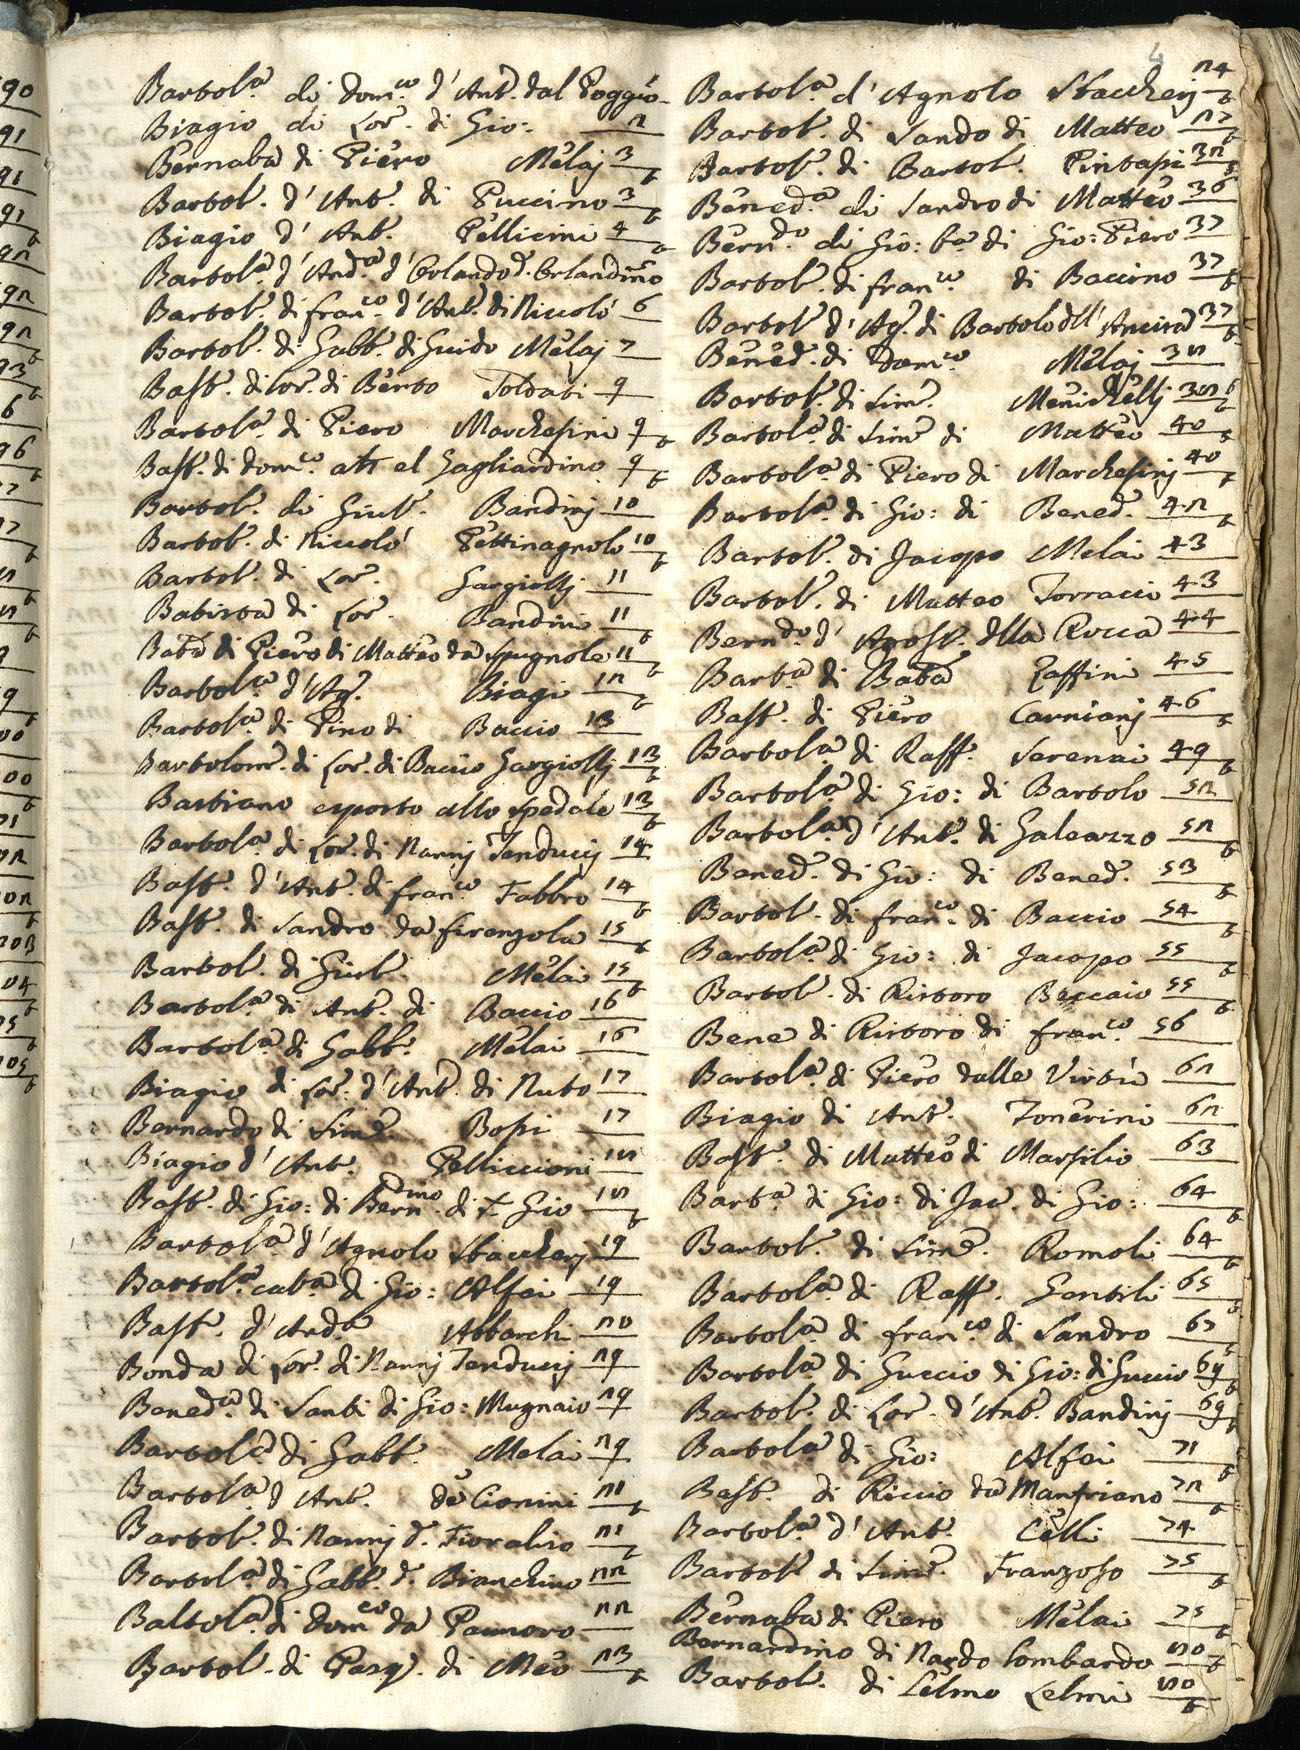 Bartol.a di Dom.co d'Ant. dal Poggio
Biagio di Lor. di Gio: 2
Bernaba di Piero Melaj 3 t
Bartol. d'Ant. di Puccino 3 t
Biagio d'Ant. Pellicini 4 t
Bartol.a d'And.a d'Orlando d. Orlandino
Bartol. di fran.co d'Ant. di Niccolò 6
Bartol. di Gabb. di Guido Melaj 7
Bast. di Lor. di Berto Soldati 9
Bartol.a di Piero Marchesini 9 t
Bast. di dom.co el Gagliardino 9 t
Bartol. di Giul. Bandinj 10
Bartol. di Niccolò Pettinagnolo 10 t
Bartol. di Lor. Gargiollj 11
Batista di Lor. Bandini 11 t
Bat.a di Piero di Matteo da Spugnole 11 t
Bartol.a d'Ag. Biagi 12 t
Bartol.a di Pino di Baccio 13
Bartolom. di Lor. di Baccio Gargiollj 13 t
Bastiano esposto allo spedale 13 t
Bartol.a di Lor. di Nannj Tenducij 14
Bast. d'Ant. di fran.co Fabbro 14 t
Bast. di Sandro da firenzola 15 t
Bartol. di Giul. Melai 15 t
Bartol.a di Ant. di Baccio 16
Bartol.a di Gabb. Melai 16
Biagio di Lor. d'Ant. di Nuto 17
Bernardo di Sim. Bosi 17
Biagio d'Ant. Pelliccioni 18
Bast. di Gio: di Bern.ino di S. Gio 18 t
Bartol.a d'Agnolo Staccherj 19
Bartol.a di Gio: Alfai 19
Bast. d'And.a Abbarchi 20
Bonda di Lor. di Nannj Tenducij 29
Bened.a di Santi di Gio: Mugnaio 29
Bartol.a di Gabb. Melai 29
Bartol.a d'Ant. de Cionini 21 t
Bartol. di Nannj d. Fioraliso 21 t
Bartol.a di Gabb. d. Bianchino 22 t
Baltol.a di Dom.co da Panzoro 22
Bartol. di Pasq. di Meo 23 t
4
Bartol.a d'Agnolo Staccherj 24 t
Bartol. di Sando di Matteo 27 t
Bartol. di Bartol. Pintasi 32 t
Bened.a di Sandro di Matteo 36
Bern.do di Gio: b.a di Gio: Piero 37
Bartol. di fran.co di Baccino 37 t
Bartol. d'Ag. di Bartolo dll' Ancisa 37 t
Bened. di Dom.co Melaj 38
Bartol. di Sim. Menichellj 38 t
Bartol.a di Sim. di Matteo 40
Bartol.a di Piero di Marchesinj 40 t
Bartol.a di Gio: di Bened. 42 t
Bartol. di Jacopo Melai 43
Bartol. di Matteo Torracci 43
Bern.do d'Agost. dlla Rocca 44
Bart.a di Bat.a Zaffini 45
Bast. di Piero Carnianj 46 t
Bartol.a di Raff. Serenai 49 t
Bartol.a di Gio: di Bartolo 52
Bartol.a d'Ant. di Galeazzo 52 t
Bened. di Gio: di Bened. 53 t
Bartol. di fran.co di Baccio 54 t
Bartol.a di Gio: di Jacopo 55 t
Bartol. di Ristoro Beccaio 55 t
Bene di Ristoro di fran.co 56
Bartol.a di Piero dalle Virtù 62
Biagio di Ant. Tonerini 62 t
Bast. di Matteo di Marsilio 63
Bart.a di Gio: di Jac. di Gio: 64 t
Bartol. di Sim. Romoli 64 t
Bartol.a di Raff. Gentili 65 t
Bartol.a di fran.co di Sandro 67 t
Bartol.a di Guccio di Gio: di Guccio 69 t
Bartol. di Lor. d'Ant. Bandinj 69 t
Bartol.a di Gio: Alfai 71 t
Bast. di Riccio da Manfriano 72 t
Bartol.a d'Ant. Celli 74
Bartol. di Sim. Franzoso 75 t
Bernaba di Piero Melai 75 t
Bernardino di Nardo Lombardo 80 t
Bartol. di Lelmo Lelmi 80 t